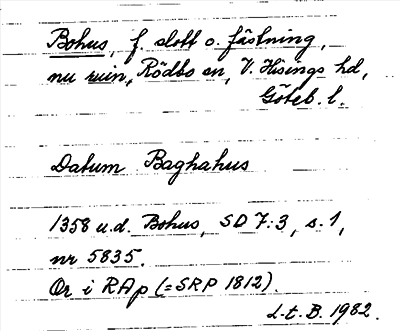 Bohus, f. slott o. fästning,
nu ruin, Rödbo sn, V. Hisings hd,
Göteb. l.
Datum Baghahus
1358 u.d. Bohus, SD 7:3, s. 1,
nr 5835.
Or i RAp (=SRP 1812).
L-t. B. 1982.